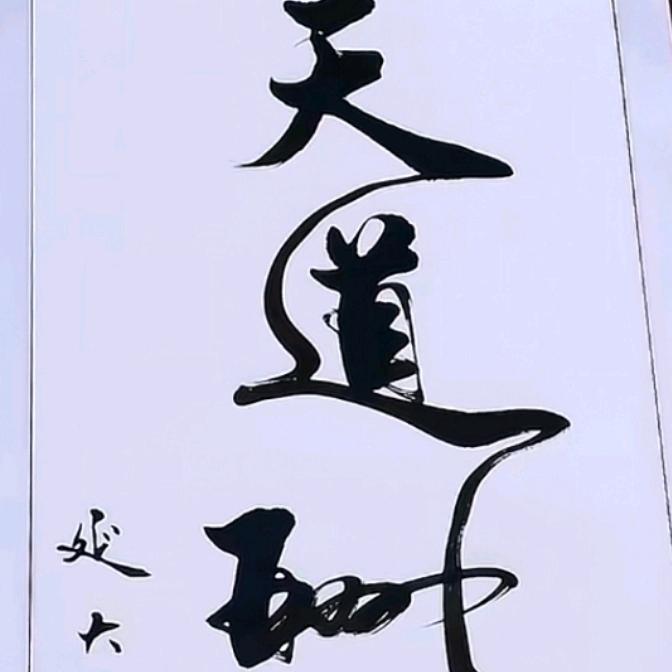 天道酬
延大